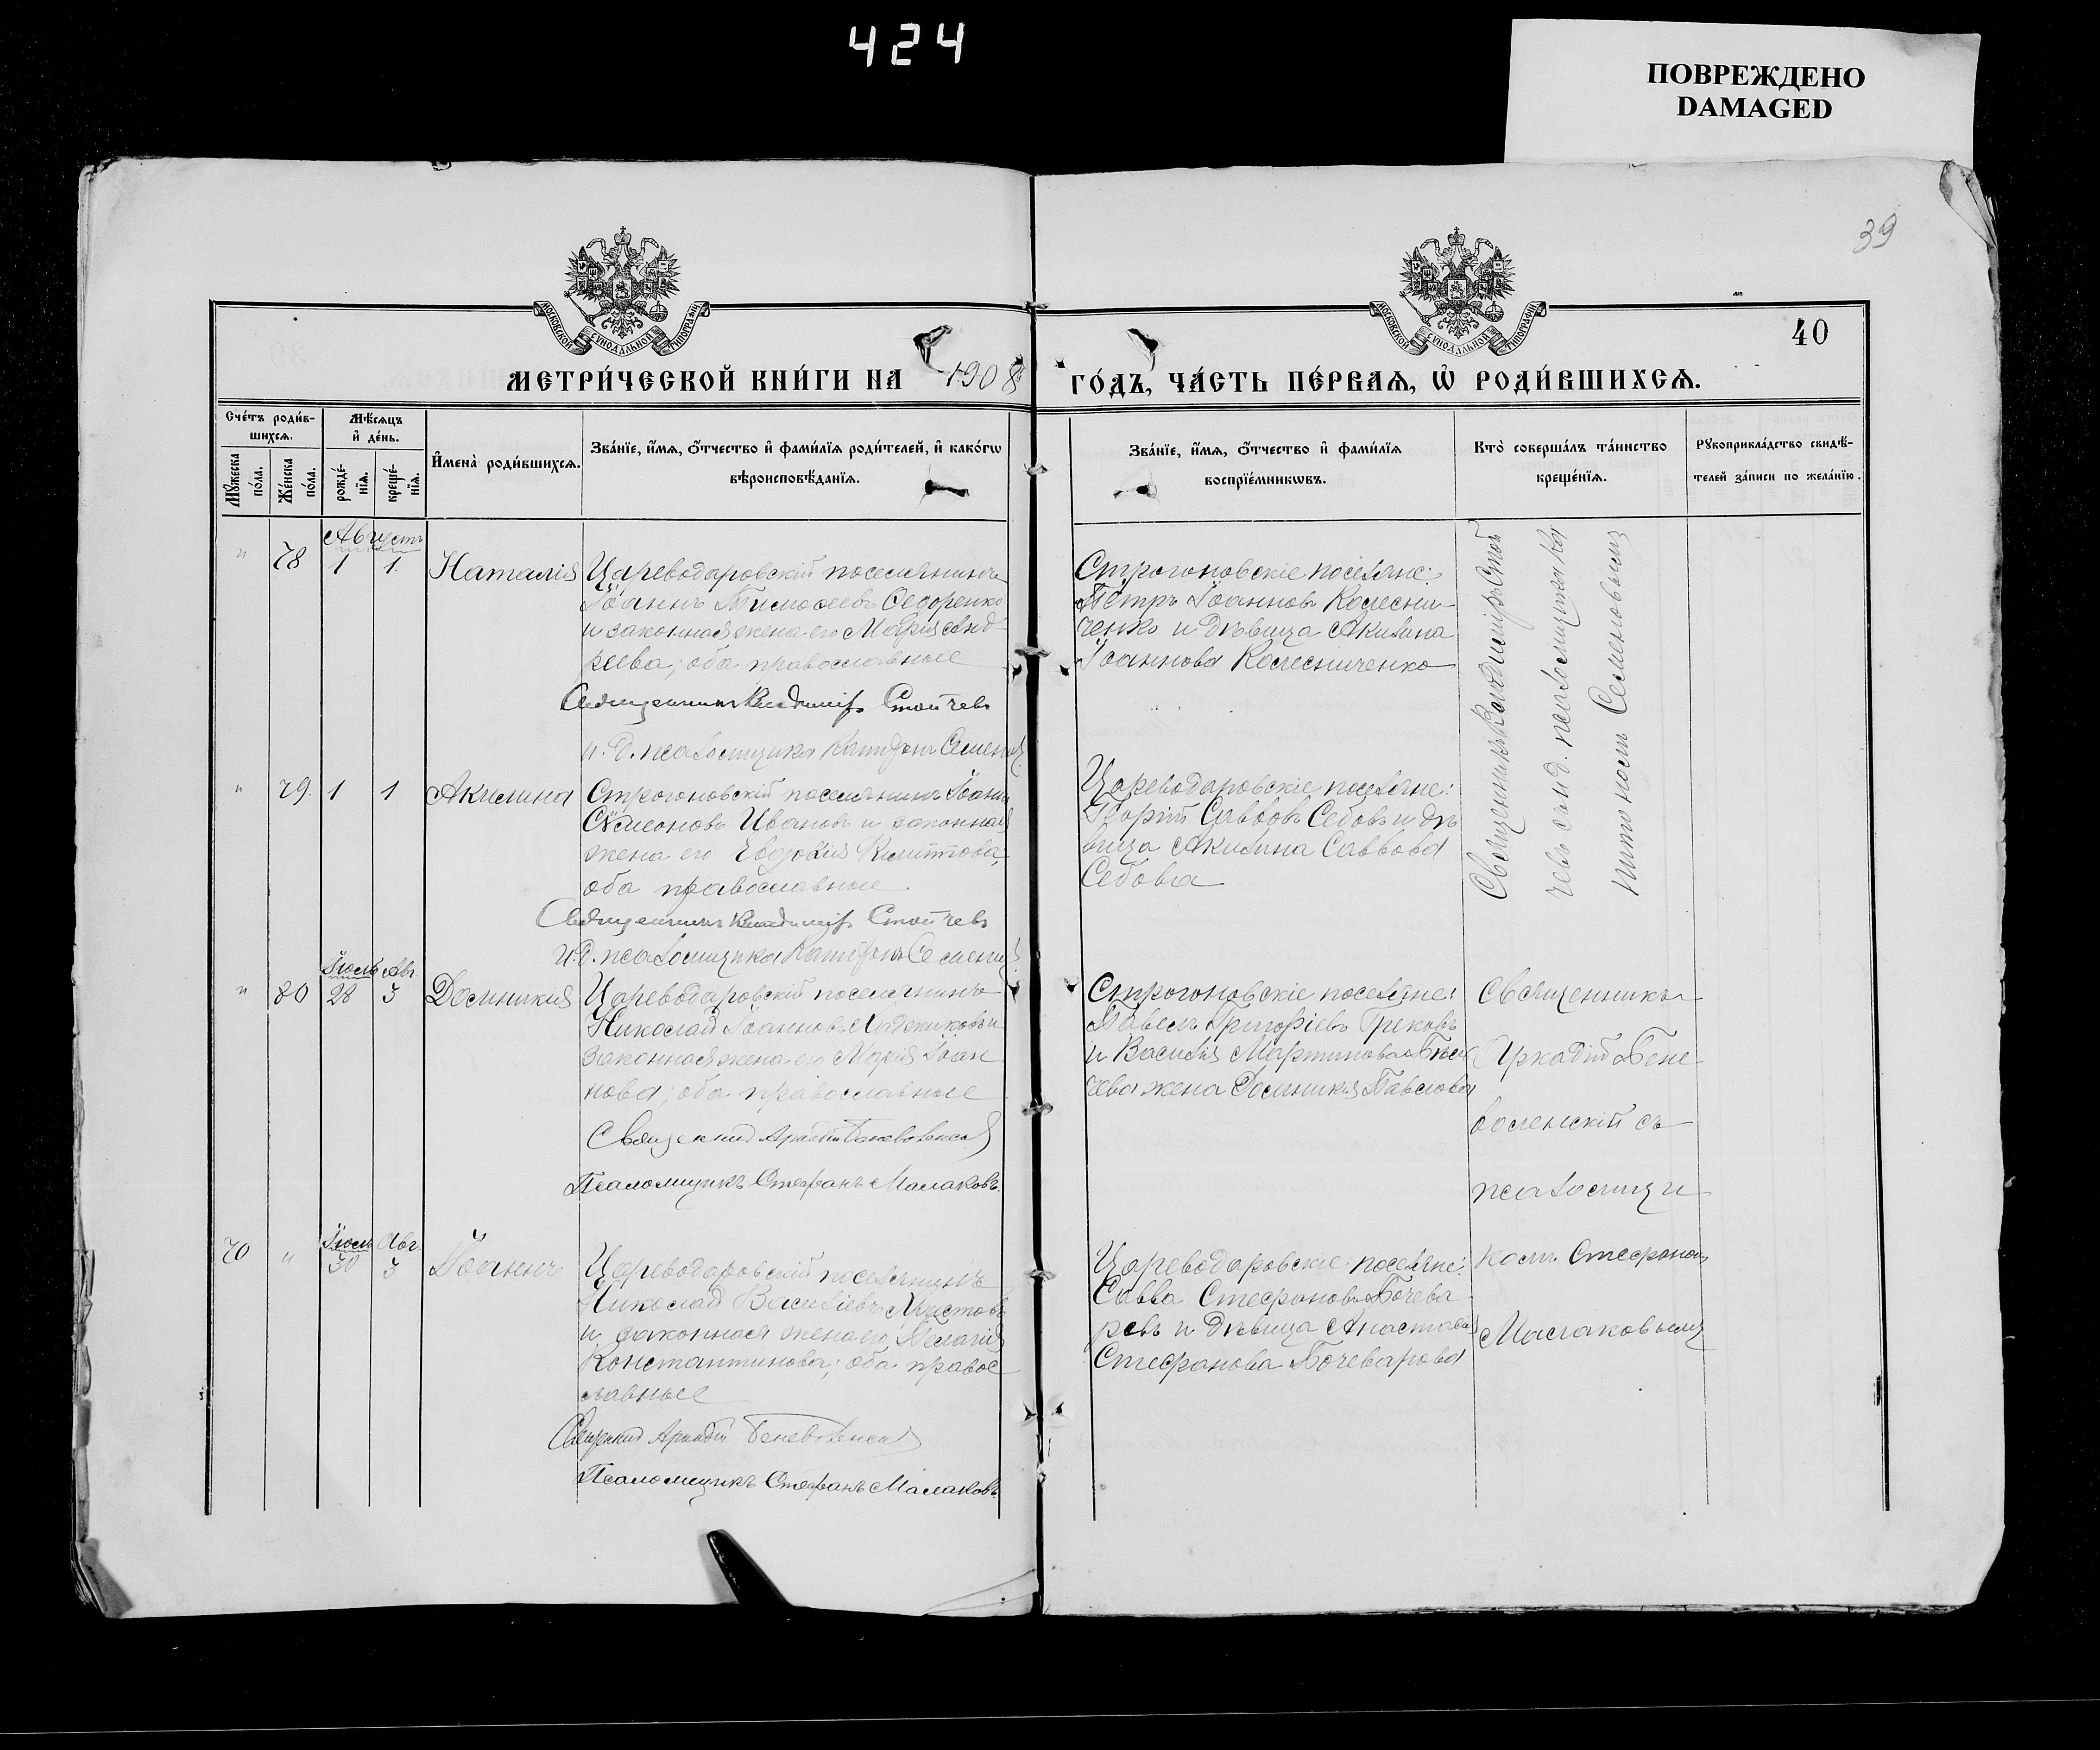 424
ПОВРЕЖДЕНО
DAMAGED
39
МОСКОВСКОЙ СУНОДАЛЬНОЙ ТИПОГРАФІИ
МОСКОВСКОЙ СУНОДАЛЬНОЙ ТИПОГРАФІИ
40
МЕТРИ́ЧЕСКОЙ КНИ́ГИ НА 1908 ГО́ДЪ, ЧА́СТЬ ПЕ́РВАЯ, Ѽ РОДИ́ВШИХСЯ.
Сче́тъ роди́в-
шихся.
Мѣ́сяцъ
и҆ де́нь.
Мꙋ́жеска по́ла.
Же́нска по́ла.
рожде́-
нїя.
креще́-
нїя.
И҆мена̀ роди́вшихся.
Зва́нїе, и҆́мя, ѻ҆́тчество и҆ фами́лїя роди́телей, и҆ како́гѡ
вѣроисповѣ́данїя.
Зва́нїе, и҆́мя, ѻ҆́тчество и҆ фами́лїя
воспрїе́мникѡвъ.
Кто̀ соверша́лъ та́инство
креще́нїя.
Рꙋкоприкла́дство свидѣ́-
телей за́писи по жела́нїю.
Августъ
" 78 1 1 Наталія
Цареводаровскій поселянинъ
Іоаннъ Тимоѳеевъ Ѳедоренко
и законная жена его Марія Анд-
реева; оба православные
Священникъ Владиміръ Стойчевъ
и. д. псаломщика
Строгоновскіе поселяне:
Петръ Іоанновъ Колесни-
ченко и дѣвица Акилина
Іоаннова Колесниченко
Священникъ Владиміръ Стой
чевъ съ и. д. псаломщика Ка
питономъ Семеновымъ
" 79. 1 1 Акилина
Строгоновскій поселянинъ Іоаннъ
Сѵмеоновъ Ивановъ и законная
жена его Евдокія
оба православные.
Священникъ Владиміръ Стойчевъ
и. д. псаломщика
Цареводаровскіе поселяне:
Георгій Саввовъ Себовъ и дѣ
вица Акилина Саввова
Себова
Іюль Авг.
" 80 28 3 Домникія
Цареводаровскій поселянинъ
Николай Іоанновъ
законная жена его Марія Іоан
нова; оба православные
Священникъ Аркадій Беневоленскій
Псаломщикъ Стефанъ Малаковъ.
Строгоновскіе поселяне:
Павелъ Григоріевъ Грековъ
и Василія Мартинова
чева жена Домникія Павлова
Священникъ
Аркадій Бене-
воленскій съ
псаломщи-
комъ Стефаномъ
Малаковымъ
Іюль Авг.
70 " 30 3 Іоаннъ
Цареводаровскій поселянинъ
Николай Василіевъ Христовъ
и законная жена его Пелагія
Константинова; оба правос
лавные
Священникъ Аркадій Беневоленскій
Псаломщикъ Стефанъ Малаковъ
Цареводаровскіе поселяне:
Савва Стефановъ Бочева-
ревъ и дѣвица Анастасія
Стефанова Бочеварова